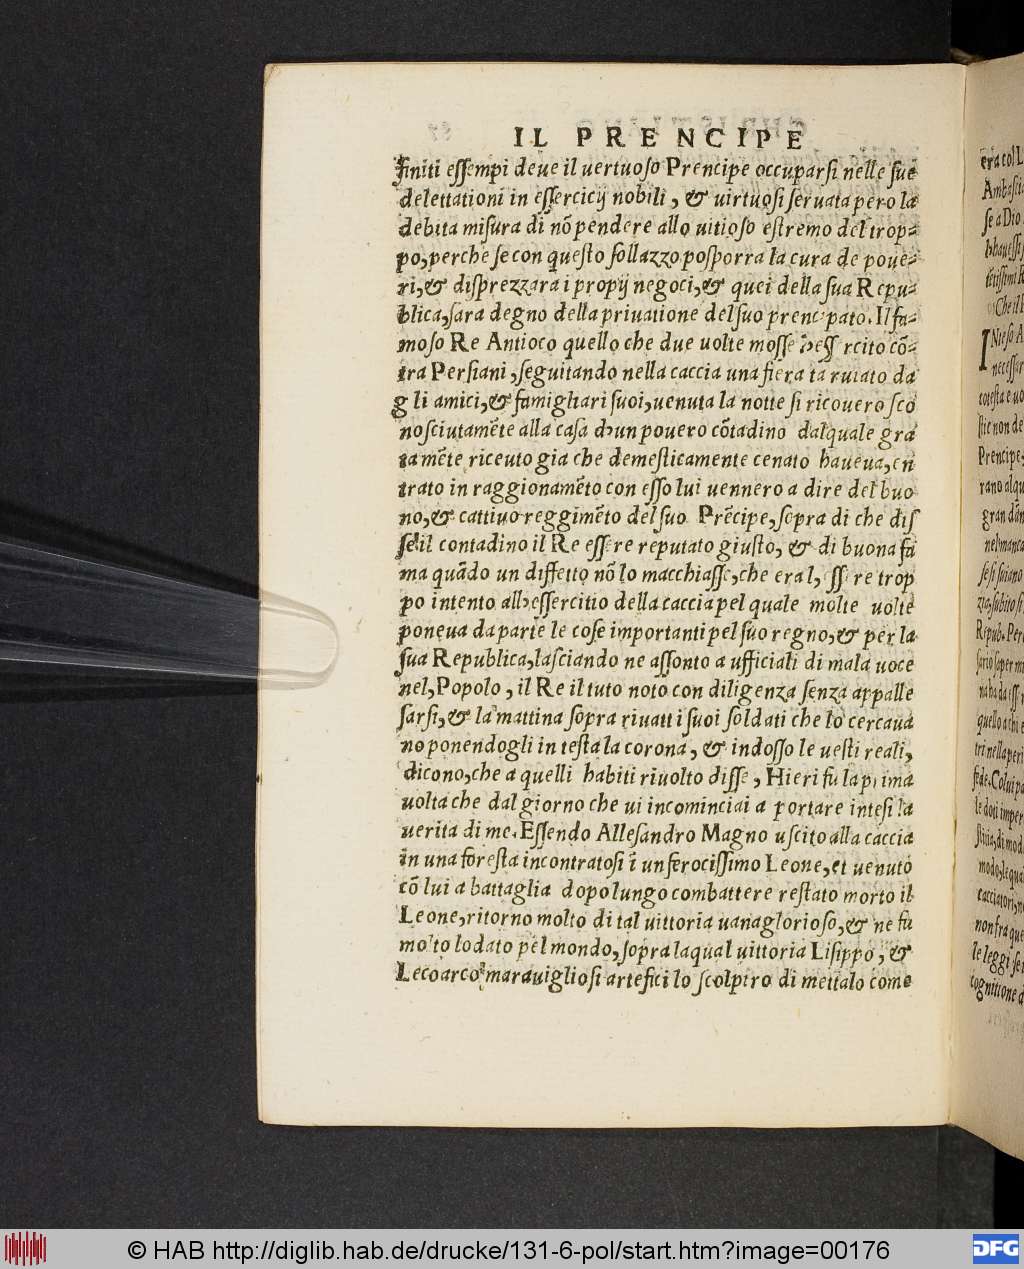 IL PRENCIPE
finiti essempi deue il uertuoso Prencipe occuparsi nelle sue
delettationi in essercicij nobili, & uirtuosi seruata pero la
debita misura di nō pendere allo uitioso estremo del trop-
po, perche se con questo sollazzo posporra la cura de poue-
ri, & disprezzara i propij negoci, & quei della sua Repu-
blica, sara degno della priuatione del suo prencipato. Il fa-
moso Re Antioco quello che due uolte mosse cō-
tra Persiani, seguitando nella caccia una fiera da
gli amici, & famigliari suoi, uenuta la notte si ricouero sco
nosciutamēte alla casa d'un pouero cōtadino dal quale gra
tamēte riceuto gia che demesticamente cenato haueua, en
trato in raggionamēto con esso lui uennero a dire del buo
no, & cattiuo reggimēto del suo Prēcipe, sopra di che dis
se il contadino il Re essere reputato giusto, & di buona fa
ma quādo un diffetto nō lo macchiasse, che era l'essere trop
po intento all'essercitio della caccia pel quale molte uolte
poneua da parte le cose importanti pel suo regno, & per la
sua Republica, lasciando ne assonto a ufficiali di mala uoce
nel, Popolo, il Re il tuto noto con diligenza senza appalle
sarsi, & la mattina sopra riuatti suoi soldati che lo cercaua
no ponendogli in testa la corona, & indosso le uesti reali,
dicono, che a quelli habiti riuolto disse, Hieri fu la prima
uolta che dal giorno che ui incominciai a portare intesi la
uerita di me. Essendo Allesandro Magno uscito alla caccia
in una foresta incontratosi ī un ferocissimo Leone, et uenuto
cō lui a battaglia dopo lungo combattere restato morto il
Leone, ritorno molto di tal uittoria uanaglorioso, & ne fu
molto lodato pel mondo, sopra laqual uittoria Lisippo, &
Lecoarco marauigliosi artefici lo scolptro di mettalo come
era col
Ambasci
se a Dio
Che il
INteso
necessar
cotesta e uo
stie non de
Prencipe,
rano alqu
gran dān
nel manca
se si
zia, subito si
Repub. Per
sario saper
na ha da
quello a chi
tri nella
fede. Colui pa
le doti imper
stitia, di mod
modo, le qua
cacciatori, n
non fra que
le leggi se
cognitione d
© HAB http://diglib.hab.de/drucke/131-6-pol/start.htm?image=00176
DFG